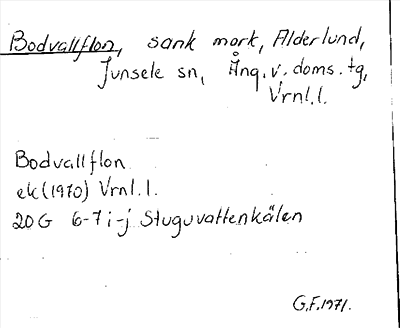 Bodvallflon, sank mark, Alderlund,
Junsele sn, Ång. v. doms. tg,
Vrnl. l.
Bodvallflon
ek (1970) Vrnl. l.
20 G 6-7 i-j Stuguvattenkälen
G.F. 1971.